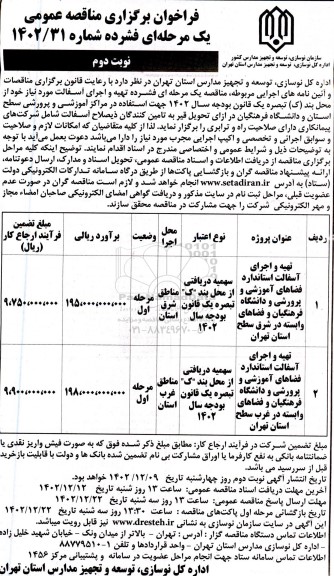 فراخوان برگزاری مناقصه عمومی
یک مرحله‌ای فشرده شماره ۱۴۰۲/۳۱
نوبت دوم
سازمان نوسازی، توسعه و تجهیز مدارس کشور
اداره کل نوسازی، توسعه و تجهیز مدارس استان تهران
اداره کل نوسازی، توسعه و تجهیز مدارس استان تهران در نظر دارد با رعایت قانون برگزاری مناقصات
و آئین نامه های اجرایی مربوطه، مناقصه یک مرحله ای فشرده تهیه و اجرای آسفالت مورد نیاز خود از
محل بند (ک) تبصره یک قانون بودجه سال ۱۴۰۲ جهت استفاده در مراکز آموزشی و پرورشی سطح
استان و دانشگاه فرهنگیان در ازای تحویل قیر به تامین کنندگان ذیصلاح آسفالت شامل شرکت‌های
پیمانکاری دارای صلاحیت راه و ترابری را برگزار نماید. لذا از کلیه متقاضیان که امکانات لازم و صلاحیت
و سوابق اجرائی و تخصصی و اکیپ اجرایی مجرب مورد نیاز را دارا می‌باشد دعوت بعمل می‌آید با توجه
به توضیحات ذیل و شرایط عمومی و اختصاصی مندرج در اسناد اقدام نمایند. توضیح اینکه کلیه مراحل
برگزاری مناقصه از دریافت اطلاعات و اسناد مناقصه عمومی، تحویل اسناد و مدارک، ارسال دعوتنامه،
ارائه پیشنهاد مناقصه گران و بازگشایی پاکت‌ها از طریق درگاه سامانه تدارکات الکترونیکی دولت
(ستاد) به آدرس www.setadiran.ir انجام خواهد شد و لازم است مناقصه گران در صورت عدم
عضویت قبلی، مراحل ثبت نام در سایت مذکور و دریافت گواهی امضای الکترونیکی صاحبان امضاء مجاز
و مهر الکترونیکی شرکت را جهت مشارکت در مناقصه محقق سازند.
ردیف عنوان پروژه نوع اعتبار محل اجرا وضعیت برآورد ریالی مبلغ تضمین فرآیند ارجاع کار (ریال)
۱ تهیه و اجرای آسفالت استاندارد فضاهای آموزشی و پرورشی و دانشگاه فرهنگیان و فضاهای وابسته در شرق سطح استان تهران سهمیه دریافتی از محل بند "ک" تبصره یک قانون بودجه سال ۱۴۰۲ مناطق شرق استان مرحله اول ۱۹۵،۰۰۰،۰۰۰،۰۰۰ ۹،۷۵۰،۰۰۰،۰۰۰
۲ تهیه و اجرای آسفالت استاندارد فضاهای آموزشی و پرورشی و دانشگاه فرهنگیان و فضاهای وابسته در غرب سطح استان تهران سهمیه دریافتی از محل بند "ک" تبصره یک قانون بودجه سال ۱۴۰۲ مناطق غرب استان مرحله اول ۱۹۸،۰۰۰،۰۰۰،۰۰۰ ۹،۹۰۰،۰۰۰،۰۰۰
مبلغ تضمین شرکت در فرآیند ارجاع کار: مطابق مبلغ ذکر شده فوق که به صورت فیش واریز نقدی یا
ضمانتنامه بانکی به نفع کارفرما یا اوراق مشارکت بی نام تضمین شده بانک ها و دولت با قابلیت بازخرید
قبل از سررسید می باشد.
تاریخ انتشار آگهی نوبت دوم روز چهارشنبه تاریخ ۱۴۰۲/۱۲/۰۹ خواهد بود.
آخرین مهلت دریافت اسناد مناقصه عمومی: ساعت ۱۳ روز شنبه تاریخ ۱۴۰۲/۱۲/۱۲
مهلت ارسال پاسخ مناقصه عمومی: ساعت ۱۳ روز سه شنبه تاریخ ۱۴۰۲/۱۲/۲۲
تاریخ بازگشائی مرحله اول پاکت‌های مناقصه : ساعت ۱۳:۳۰ روز سه شنبه تاریخ ۱۴۰۲/۱۲/۲۲
این آگهی در سایت سازمان نوسازی به نشانی www.dresteh.ir نیز قابل رویت میباشد.
اطلاعات تماس دستگاه مناقصه گزار : آدرس : تهران - بالاتر از میدان ونک - خیابان شهید خلیل زاده
- اداره کل نوسازی مدارس استان تهران - واحد قراردادها و تلفن ۱-۸۸۷۷۹۵۱۰
اطلاعات تماس سامانه ستاد جهت انجام مراحل عضویت در سامانه و پشتیبانی مرکز ۱۴۵۶
اداره کل نوسازی، توسعه و تجهیز مدارس استان تهران